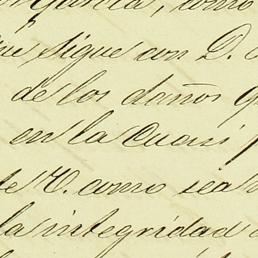 García, como
que sigue con D.
de los daños q
en la Cuasi
te V. como sea
la integridad